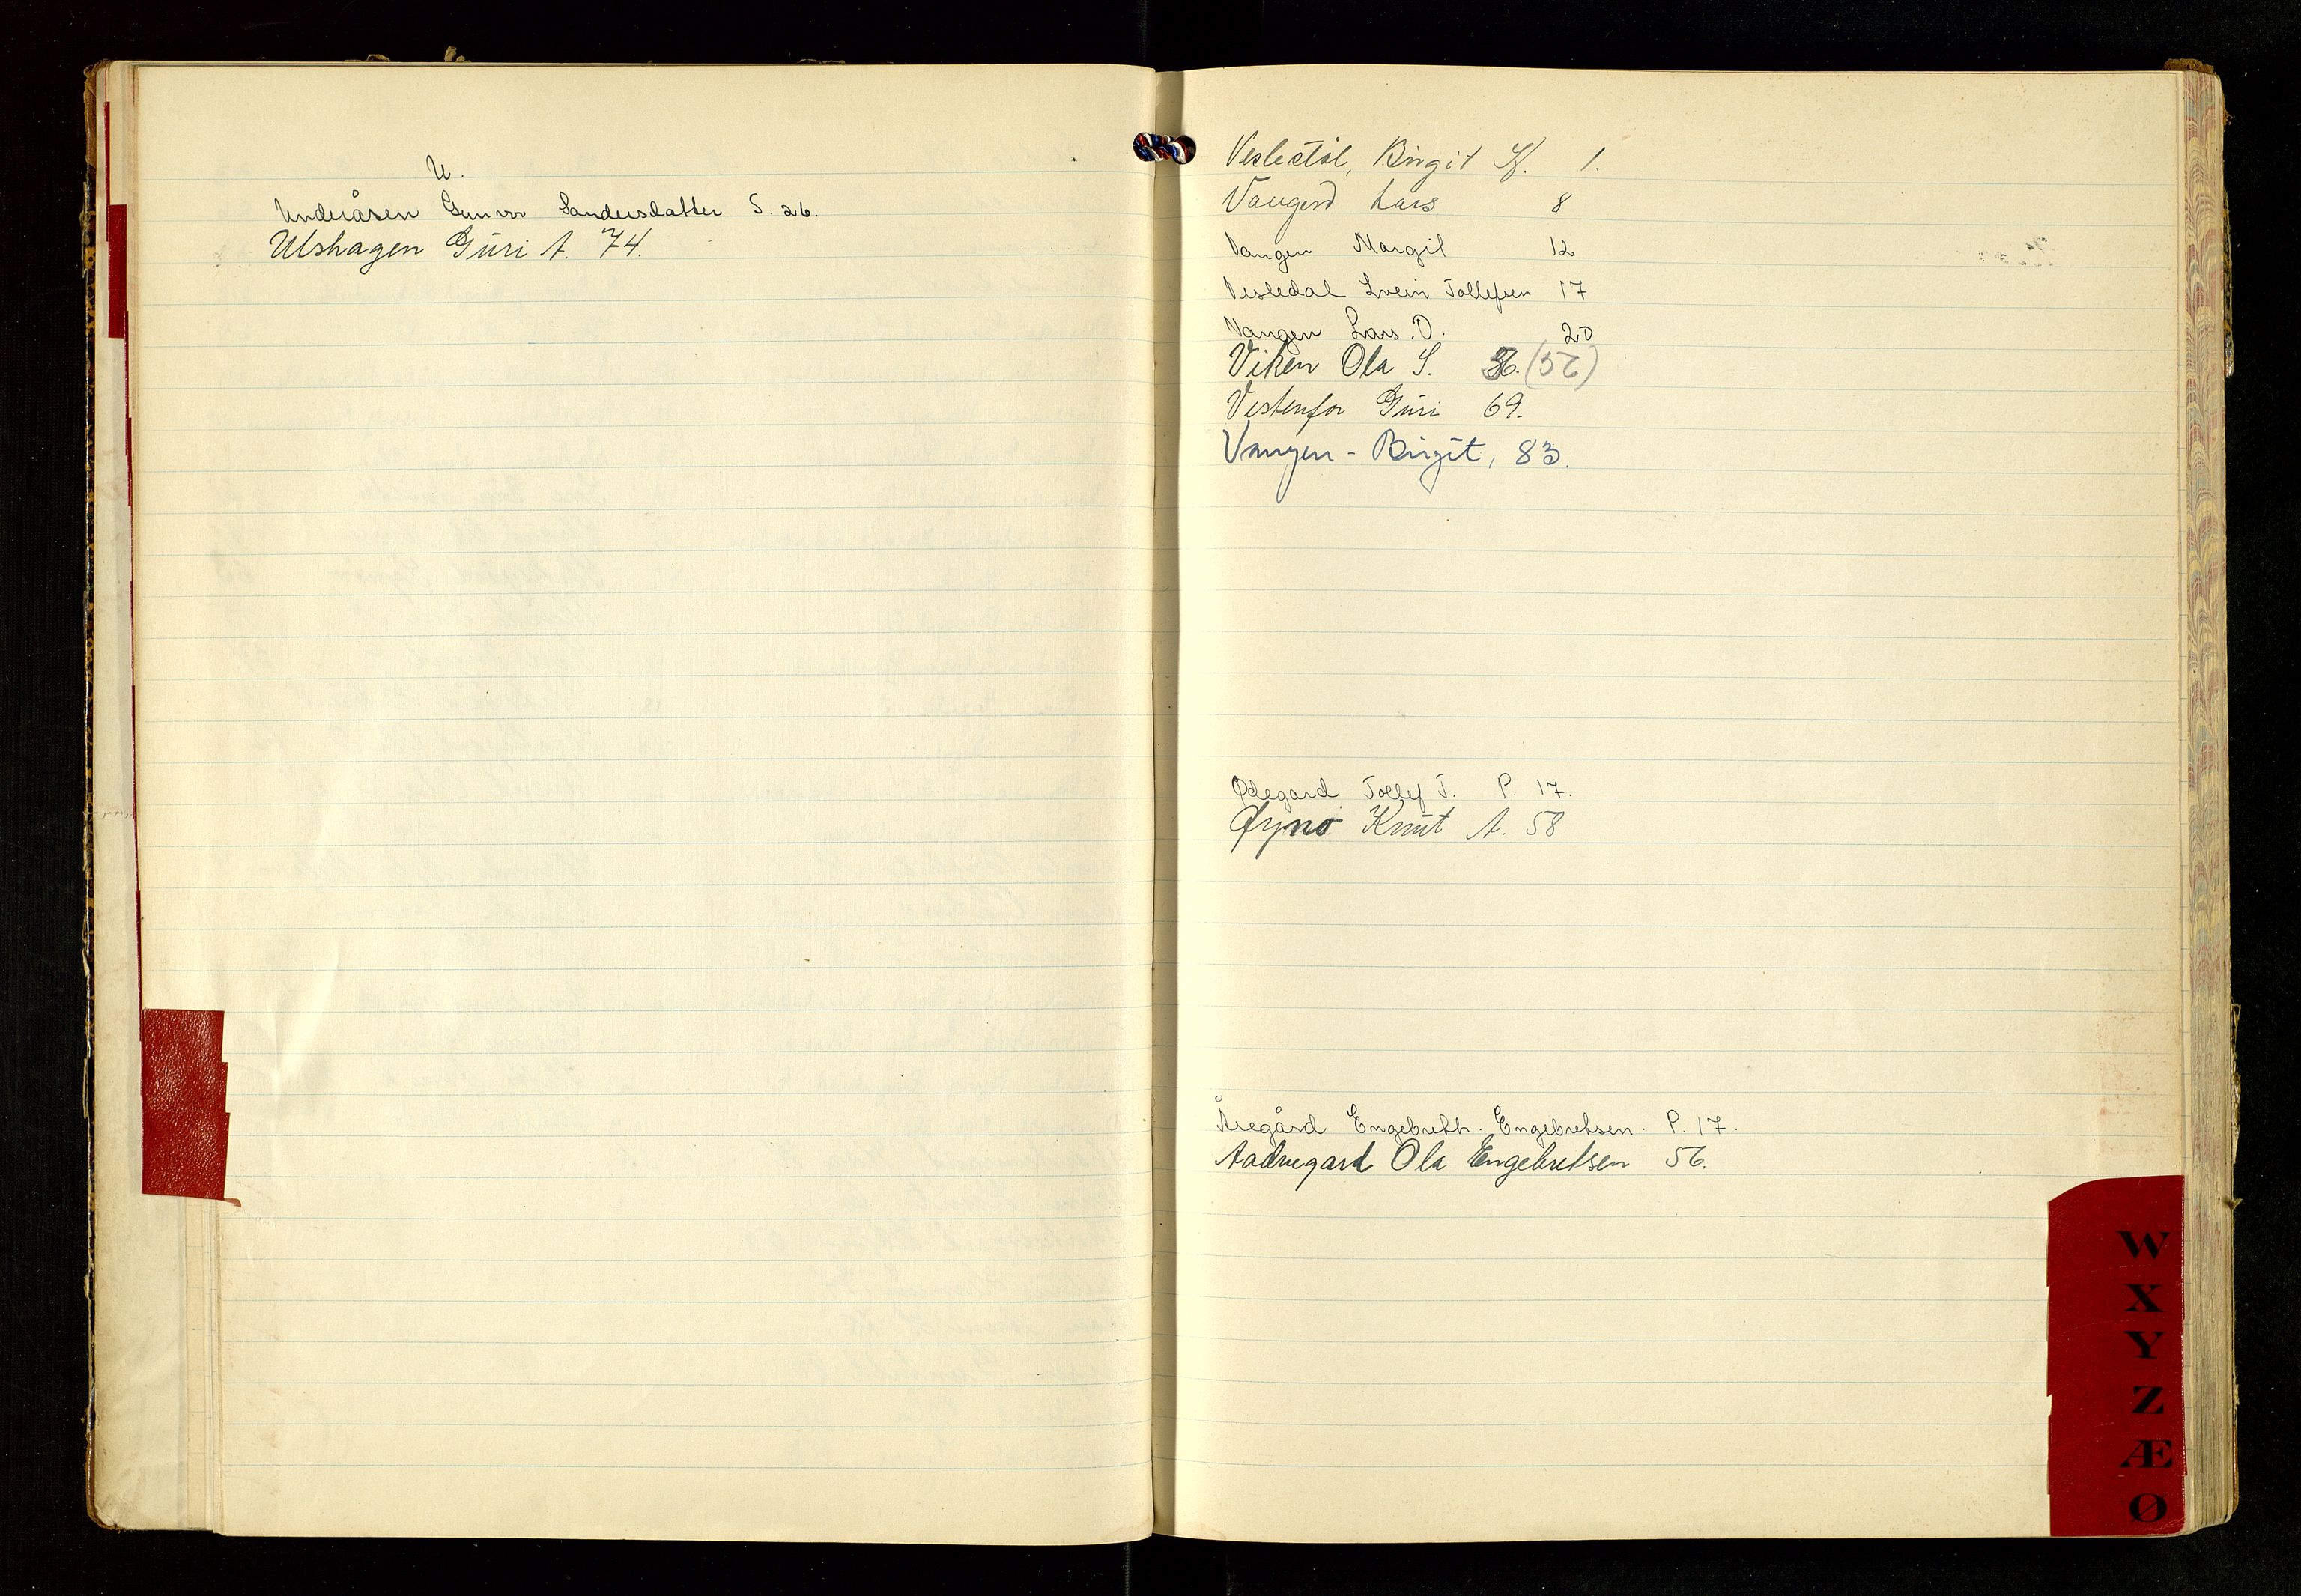 U.
Underåsen Gunvor Sandersdatter S. 26.
Ulshagen Guri A. 74.
Veslestøl, Birgit H. 1.
Vangerd Lars 8
Vangen Margit 12
Vesledal Svein Tollefsen 17
Vangen Lars O. 20
Viken Ola S. 36. (56)
Vestenfor Guri 69.
Vangen - Birgit, 83.
Ødegard Tollef T. P. 17.
Øynø Knut A. 58
Åsegård Engebreth. Engebretsen. P. 17.
Aadnegard Ola Engebretsen 56.
W
X
Y
Z
Æ
Ø